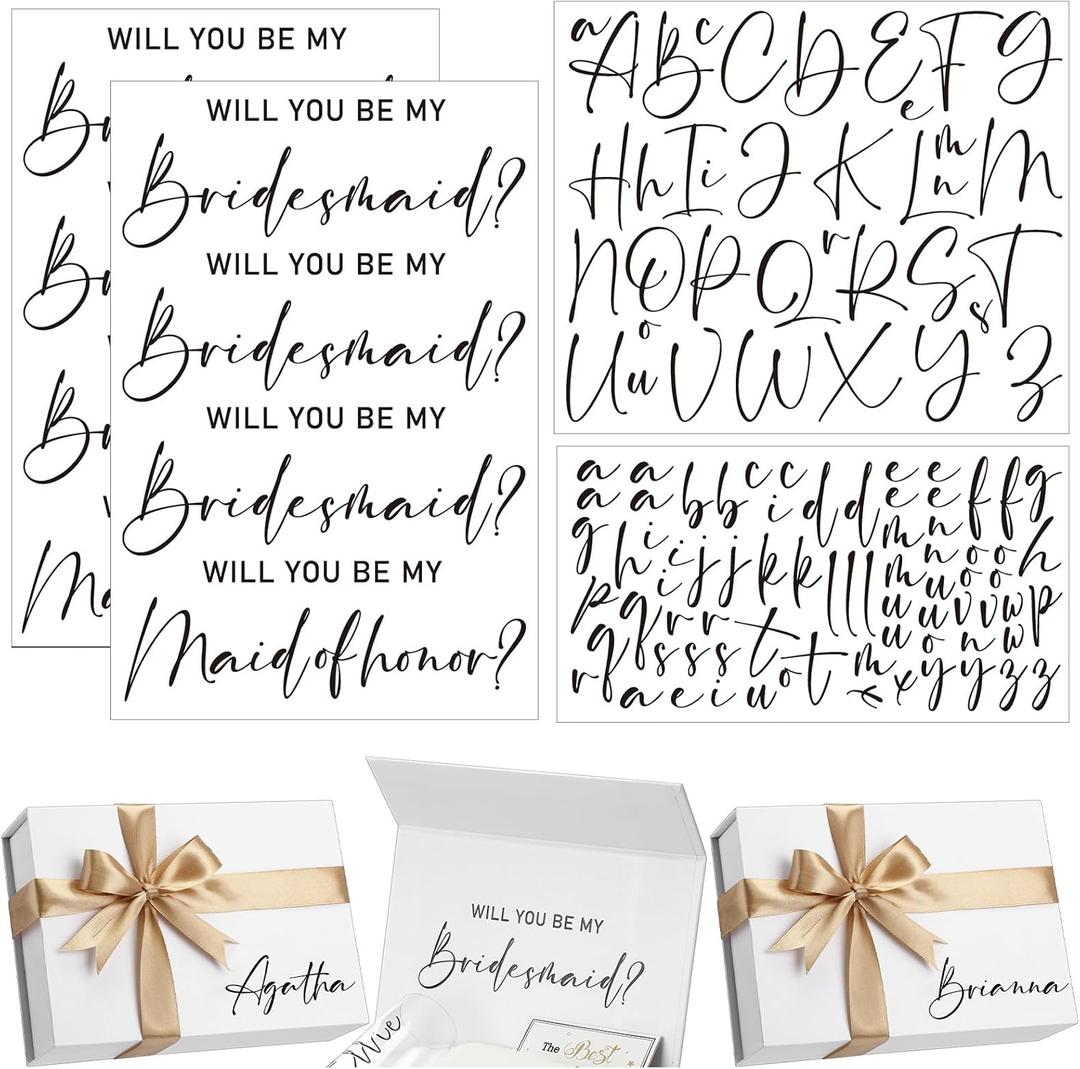 WILL YOU BE MY
Br
Br
Br
Ma
WILL YOU BE MY
Bridesmaid?
WILL YOU BE MY
Bridesmaid?
WILL YOU BE MY
Bridesmaid?
WILL YOU BE MY
Maid of honor?
a A B c C D E e F G
H h I i J K L m n M
N O t P Q r R S s T
U o u V W X Y Z
a a c c d d e e f f g
a a b b i e e
g h i i j j k k l l l m n o o h
i m n o o
p q r r t u u v v w p
q f s s s s t u o n w
r f a e i u o t m x x y y z z
Agatha
WILL YOU BE MY
Bridesmaid?
The Best
Brianna